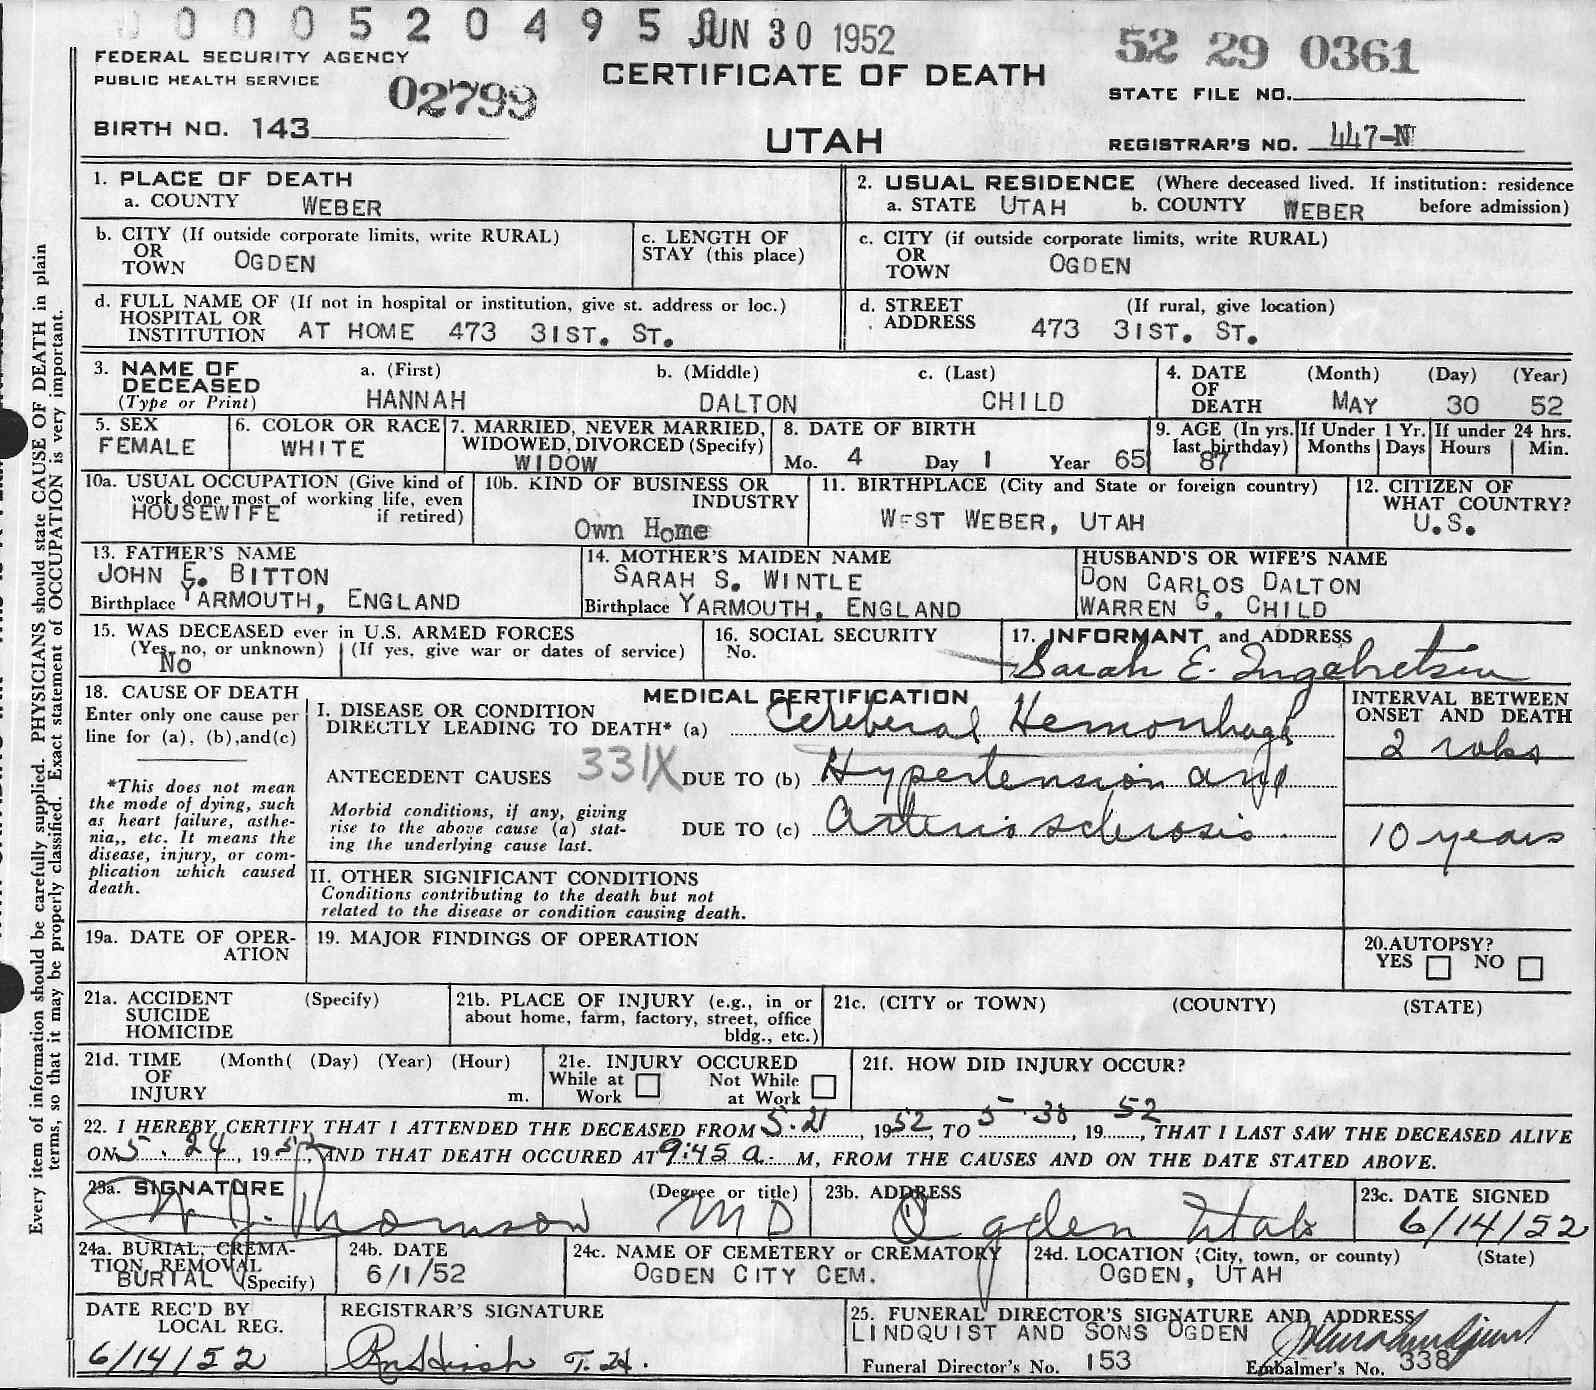 0000520495 JUN 30 1952
52 29 0361
FEDERAL SECURITY AGENCY
PUBLIC HEALTH SERVICE
02799
CERTIFICATE OF DEATH
STATE FILE NO.
BIRTH NO. 143
UTAH
REGISTRAR'S NO. 447-N
Every item of information should be carefully supplied. PHYSICIANS should state CAUSE OF DEATH in plain
terms, so that it may be properly classified. Exact statement of OCCUPATION is very important.
1. PLACE OF DEATH
a. COUNTY WEBER
2. USUAL RESIDENCE (Where deceased lived. If institution: residence
a. STATE UTAH b. COUNTY WEBER before admission)
b. CITY (If outside corporate limits, write RURAL)
OR
TOWN OGDEN
c. LENGTH OF
STAY (this place)
c. CITY (if outside corporate limits, write RURAL)
OR
TOWN OGDEN
d. FULL NAME OF (If not in hospital or institution, give st. address or loc.)
HOSPITAL OR
INSTITUTION AT HOME 473 31ST. ST.
d. STREET (If rural, give location)
ADDRESS 473 31ST. ST.
3. NAME OF a. (First) b. (Middle) c. (Last)
DECEASED
(Type or Print) HANNAH DALTON CHILD
4. DATE (Month) (Day) (Year)
OF
DEATH MAY 30 52
5. SEX
FEMALE
6. COLOR OR RACE
WHITE
7. MARRIED, NEVER MARRIED,
WIDOWED, DIVORCED (Specify)
WIDOW
8. DATE OF BIRTH
Mo. 4 Day 1 Year 65
9. AGE (In yrs.
last birthday)
87
If Under 1 Yr.
Months Days
If under 24 hrs.
Hours Min.
10a. USUAL OCCUPATION (Give kind of
work done most of working life, even
HOUSEWIFE if retired)
10b. KIND OF BUSINESS OR
INDUSTRY
Own Home
11. BIRTHPLACE (City and State or foreign country)
WEST WEBER, UTAH
12. CITIZEN OF
WHAT COUNTRY?
U.S.
13. FATHER'S NAME
JOHN E. BITTON
Birthplace YARMOUTH, ENGLAND
14. MOTHER'S MAIDEN NAME
SARAH S. WINTLE
Birthplace YARMOUTH, ENGLAND
HUSBAND'S OR WIFE'S NAME
DON CARLOS DALTON
WARREN G. CHILD
15. WAS DECEASED ever in U.S. ARMED FORCES
(Yes, no, or unknown) (If yes, give war or dates of service)
NO
16. SOCIAL SECURITY
No.
17. INFORMANT and ADDRESS
Sarah E. Ingebretsen
18. CAUSE OF DEATH
Enter only one cause per
line for (a), (b),and(c)
*This does not mean
the mode of dying, such
as heart failure, asthe-
nia,, etc. It means the
disease, injury, or com-
plication which caused
death.
MEDICAL CERTIFICATION
I. DISEASE OR CONDITION
DIRECTLY LEADING TO DEATH* (a) Cereberal Hemorrhage
ANTECEDENT CAUSES 331X DUE TO (b) Hypertension and
Morbid conditions, if any, giving
rise to the above cause (a) stat-
ing the underlying cause last.
DUE TO (c) Arteriosclerosis
INTERVAL BETWEEN
ONSET AND DEATH
2 wks
10 years
II. OTHER SIGNIFICANT CONDITIONS
Conditions contributing to the death but not
related to the disease or condition causing death.
19a. DATE OF OPER-
ATION
19. MAJOR FINDINGS OF OPERATION
20.AUTOPSY?
YES NO
21a. ACCIDENT (Specify)
SUICIDE
HOMICIDE
21b. PLACE OF INJURY (e.g., in or
about home, farm, factory, street, office
bldg., etc.)
21c. (CITY or TOWN) (COUNTY) (STATE)
21d. TIME (Month( (Day) (Year) (Hour)
OF
INJURY m.
21e. INJURY OCCURED
While at Not While
Work at Work
21f. HOW DID INJURY OCCUR?
22. I HEREBY CERTIFY THAT I ATTENDED THE DECEASED FROM 5.21, 1952, TO 5 30 52, 19....., THAT I LAST SAW THE DECEASED ALIVE
ON 5.24, 1952, AND THAT DEATH OCCURED AT 9:45 a. M, FROM THE CAUSES AND ON THE DATE STATED ABOVE.
23a. SIGNATURE (Degree or title)
Thomson MD
23b. ADDRESS
Ogden Utah
23c. DATE SIGNED
6/14/52
24a. BURIAL, CREMA-
TION, REMOVAL
BURIAL (Specify)
24b. DATE
6/1/52
24c. NAME OF CEMETERY or CREMATORY
OGDEN CITY CEM.
24d. LOCATION (City, town, or county) (State)
OGDEN, UTAH
DATE REC'D BY
LOCAL REG.
6/14/52
REGISTRAR'S SIGNATURE
25. FUNERAL DIRECTOR'S SIGNATURE AND ADDRESS
LINDQUIST AND SONS OGDEN
Funeral Director's No. 153 Embalmer's No. 338